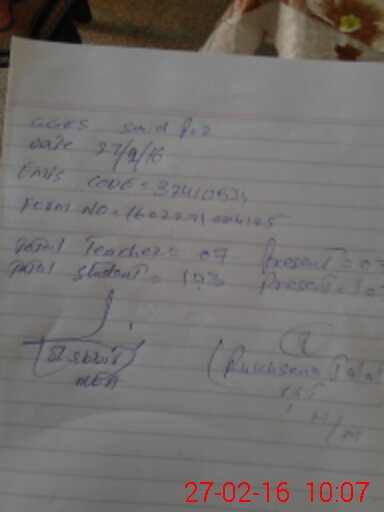 GGES Said P.2
Date 27/2/16
EMIS CODE = 37410534
FORM NO = 1602271004125
Total Teacher = 07 Present = 03
Total Student = 103 Present = 103
MEA
Rukhsana
SST
H/M
27-02-16 10:07